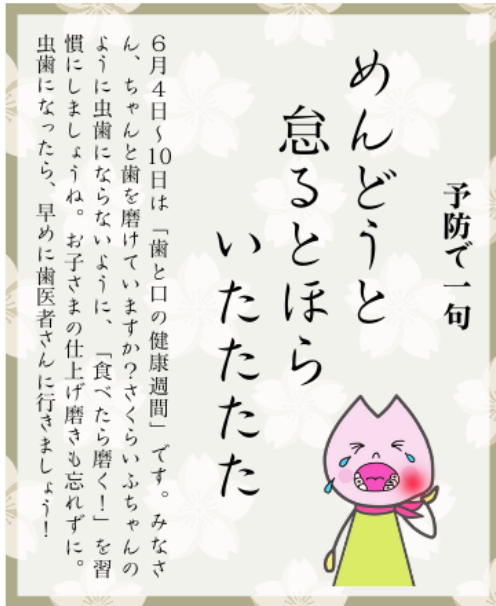 予防で一句
めんどうと
怠るとほら
いたたたた
6月4日～10日は「歯と口の健康週間」です。みなさ
ん、ちゃんと歯を磨けていますか？さくらいふちゃんの
ように虫歯にならないように、「食べたら磨く！」を習
慣にしましょうね。お子さまの仕上げ磨きも忘れずに。
虫歯になったら、早めに歯医者さんに行きましょう！